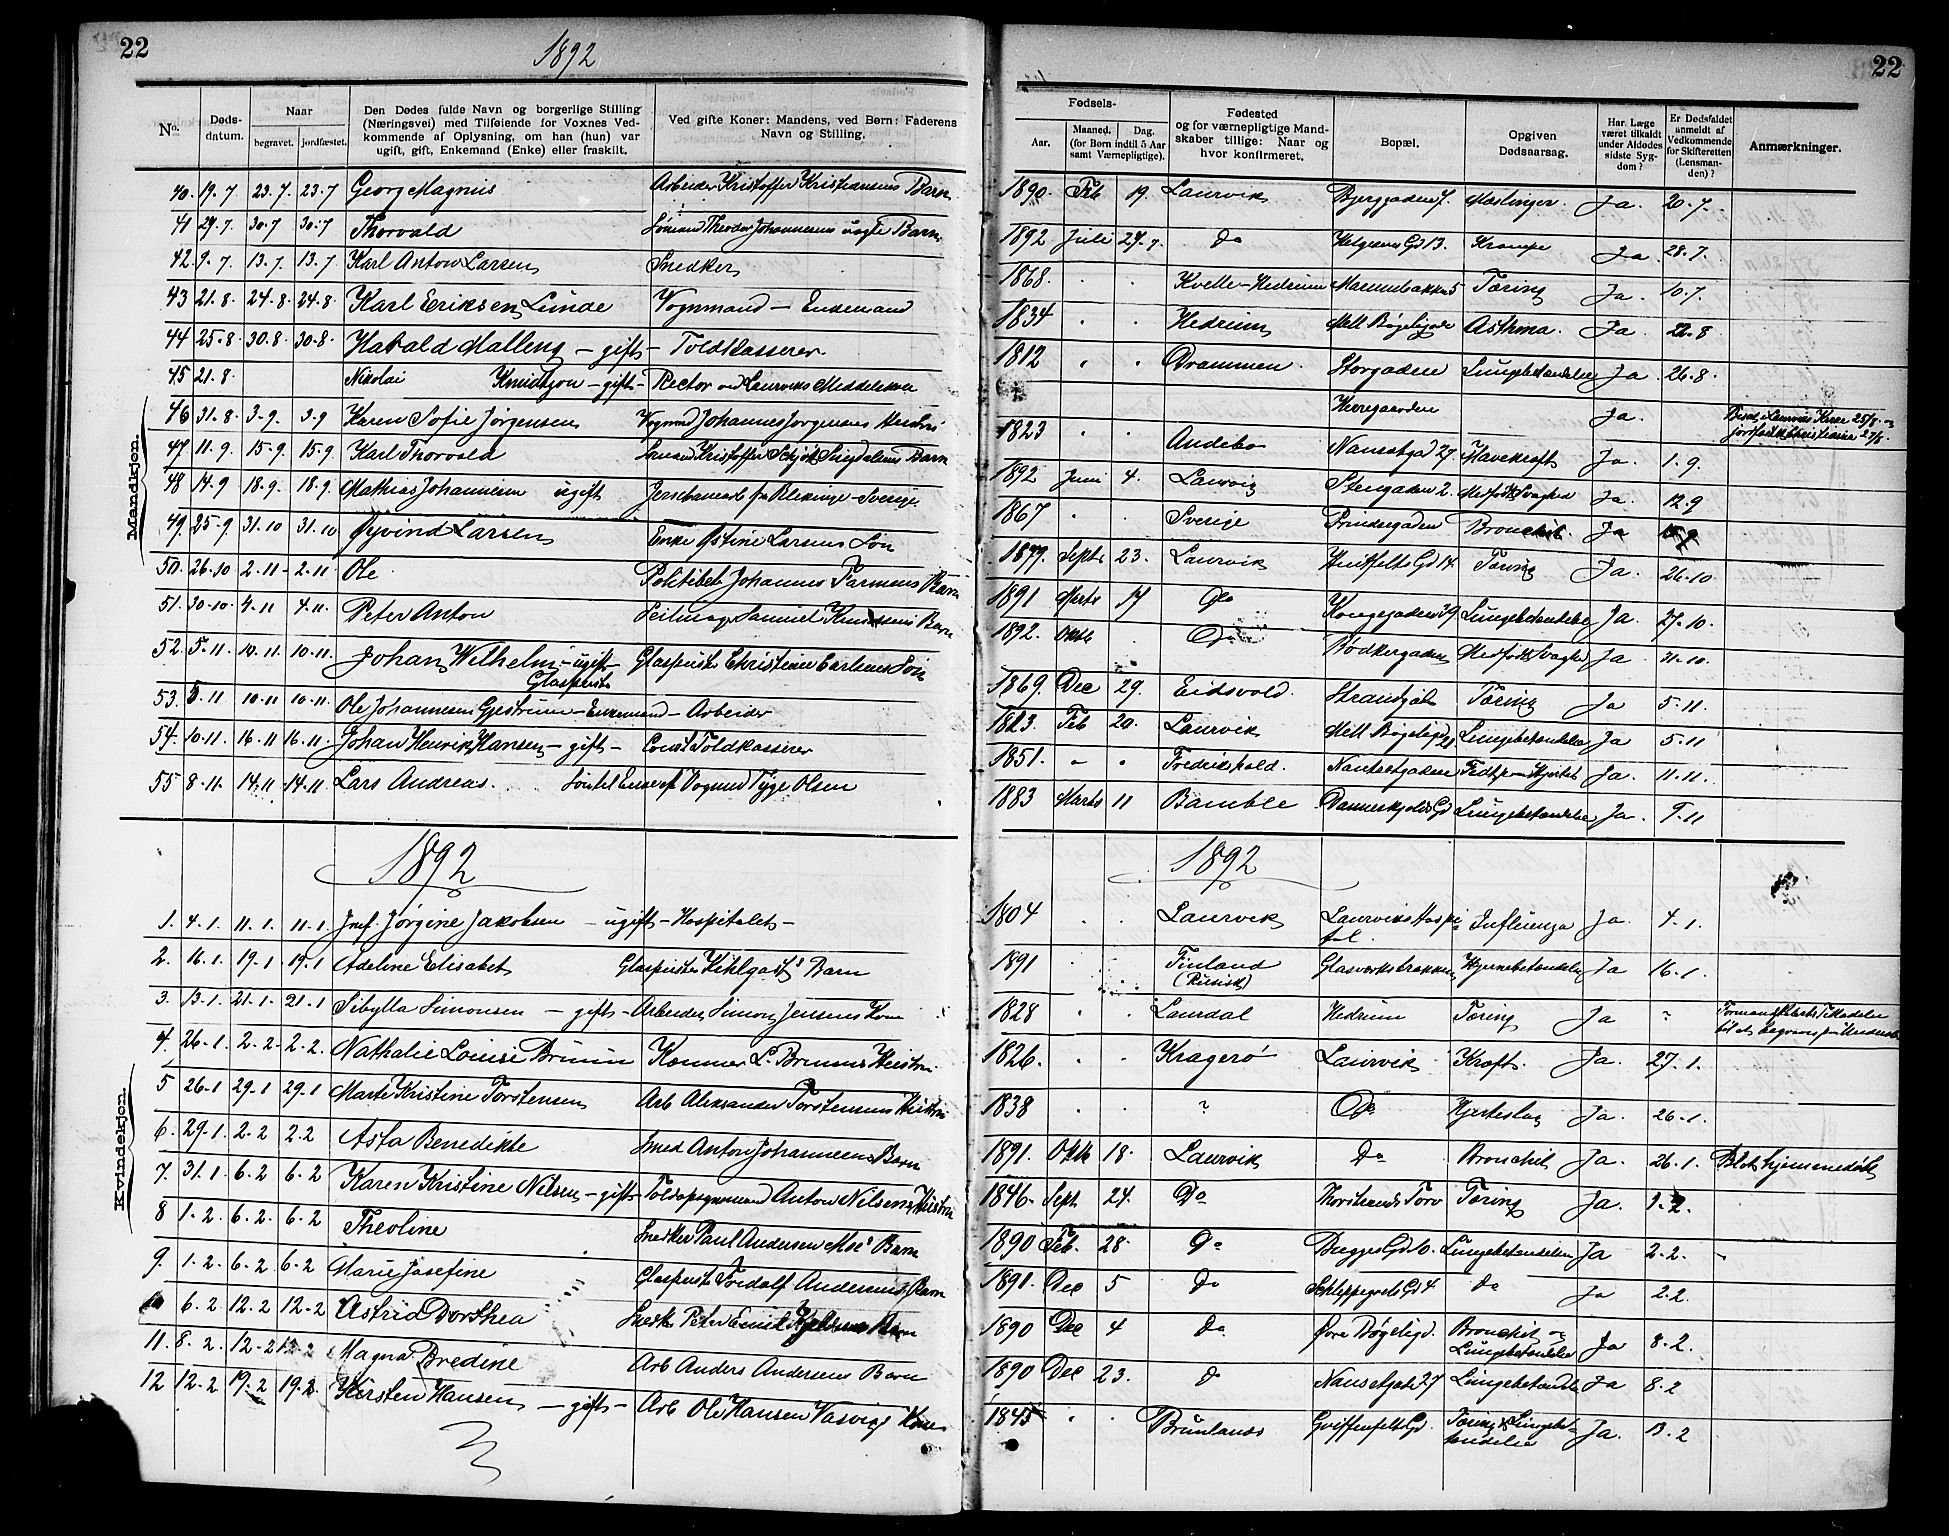 22
1892
22
No.
Døds-datum.
Naar
begravet.
jordfæstet.
Den Dødes fulde Navn og borgerlige Stilling (Næringsvei) med Tilføiende for Voxnes Vedkommende af Oplysning, om han (hun) var ugift, gift, Enkemand (Enke) eller fraskilt.
Ved gifte Koner: Mandens, ved Børn: Faderens Navn og Stilling.
Fødsels-
Aar.
Maaned. Dag.
(for Børn indtil 5 Aar samt Værnepligtige).
Fødested og for værnepligtige Mandskaber tillige: Naar og hvor konfirmeret.
Bopæl.
Opgiven Dødsaarsag.
Har Læge været tilkaldt under Afdødes sidste Sygdom?
Er Dødsfaldet anmeldt af Vedkommende for Skifteretten (Lensmanden)?
Anmærkninger.
Mandkjøn.
40. 19.7 23.7. 23.7 Georg Magnus Arbeider Kristoffer Kristiansens Barn 1890. Feb 19. Laurvik Bjerggaden 7. Mæslinger Ja. 20.7.
41 29.7. 30.7 30.7 Thorvald Sømand Theodor Johannesens uægte Barn 1892 Juli 27. Do Helgesens Gd 13. Krampe Ja 28.7.
42. 9.7. 13.7. 13.7 Karl Anton Larsen Snedker 1868. Kvelle-Hedrum Tæring Ja. 10.7.
43 21.8. 24.8. 24.8. Karl Eriksen Linde Vognmand – Enkemand 1834 Hedrum Mell Bøgeligade Asthma. Ja 22.8
44 25.8 30.8. 30.8. Harald Malleng – gift – Toldkasserer 1812 Drammen Storgaden Lungebetændelse Ja 26.8.
45 21.8. Nikolai Knudtzon – gift – Rector ved Laurviks Middelskole Herregaarden Ja. Laurviks Kirke 25/8 og jordfæstet Christiania 27/8.
46 31.8. 3.9. 3.9 Karen Sofie Jørgensen Vognmd Johannes Jørgensens Hustru 1823 Andebo Nansetgd 27. Mavekræft Ja. 1.9.
47 11.9. 15.9. 15.9 Karl Thorvald Sømand Kristoffer Barn 1892 Juni 4. Laurvig Stengaden 2. Medfødt Svaghed Ja. 12.9
48 14.9 18.9. 18.9. Mathias Johannesen ugift fra Blekinge – Sverige 1867 Sverige Prindsegaden Bronchit. Ja
49. 25.9. 31.10 31.10 Øyvind Larsen Enke Østine Larsens Søn 1877. Septr 23. Laurvik Huitfelts Gd 14 Tæring Ja. 26.10
50. 26.10 2.11 2.11 Ole Politibet Johannes Barn 1891 Marts 17 Do Kongegaden 39 Lungebetændelse Ja 27.10.
51. 30.10. 4.11 4.11. Peter Anton Seilmager Samuel Knudsens Barn 1892. Oktb Do Bødkergaden Medfødt Svaghed Ja 31.10.
52. 5.11. 10.11. 10.11. Johan Wilhelm – ugift – Glaspuster Glaspuster Christines Søn 1869. Dec 29. Eidsvold. Strandgade Tæring Ja 5.11.
53. 5.11 10.11 10.11. Ole Johannesen Gjestrum – Enkemand – Arbeider 1823. Feb 20. Laurvik Mell Bøgeligd 21 Lungebetændelse Ja 5.11
54. 10.11. 16.11 16.11. Johan Henrik Hansen – gift – Const Toldkasserer 1851. Fredrikshald. Nansetgaden Fedt paa Hjertet Ja. 11.11.
55 8.11. 14.11 14.11 Lars Andreas. Vogmd Tyge Olsen 1883 Marts 11 Bamble Danneskjolds Gd Lungebetændelse Ja. 9.11
1892
1892
Kvindekjøn.
1. 4.1. 11.1. 11.1 Jmf. Jørgine Jakobsen – ugift – Hospitalet – 1804 Laurvik Laurviks Hospital. Influenza Ja. 4.1.
2. 16.1 19.1 19.1 Adeline Elisabet Glaspuster Kihlgasts Barn 1891 Finland (Russisk) Glasværksbrakken Hjernebetændelse Ja 16.1.
3. 13.1. 21.1. 21.1 Sibylla Simonsen – gift – Arbeider Simon Jensens Kone 1828 Laurdal Hedrum Tæring Ja
4. 26.1. 2.2 2.2. Nathalie Louise Bruun Kæmner L. Bruuns Hustru 1826. Kragerø Laurvik Kræft. Ja. 27.1.
5 26.1 29.1 29.1 Marte Kristine Torstensen Arb Aleksander Torstensens Hustru 1838 Do Hjerteslag Ja. 26.1.
6. 29.1. 2.2 2.2 Asta Benedikte Smed Anton Johannesens Barn 1891. Oktb 18. Laurvik Do Bronchit Ja. 26.1. Blot hjemmedøbt
7. 31.1. 6.2. 6.2 Karen Kristine Nilsen – gift Toldopsynsmand Anton Nilsens Hustru 1846. Sept. 24. Do Torv Tæring Ja. 1.2.
8 1.2. 6.2. 6.2 Theoline Snedker Paul Andersen Moe's Barn 1890 Feb. 28. Do Bugges Gd 10. Lungebetændelse Ja 2.2.
9. 1.2 6.2 6.2 Marie Josefine Glaspuster Fridolf Andersens Barn 1891. Dec 5 Do Schleppegrels Gd 4 Do Ja 2.2.
10 6.2 12.2 12.2 Astrid Dorthea Snedk Peter Emil Barn 1890 Dec 4 Do Øvre Bøgeligd. Bronchit og Lungebetændelse Ja 8.2.
11. 8.2. 12.2 12.2 Magna Bredine Arb Anders Andersens Barn 1890 Dec 23. Do Nansetgade 27 Lungebetændelse Ja 8.2
12 12.2 19.2 19.2. Kirsten Hansen – gift – Arb Ole Hansen Vasvigs Kone 1845 Brunlanes Griffenfelts Gd. Tæring & Lungebetændelse Ja. 13.2